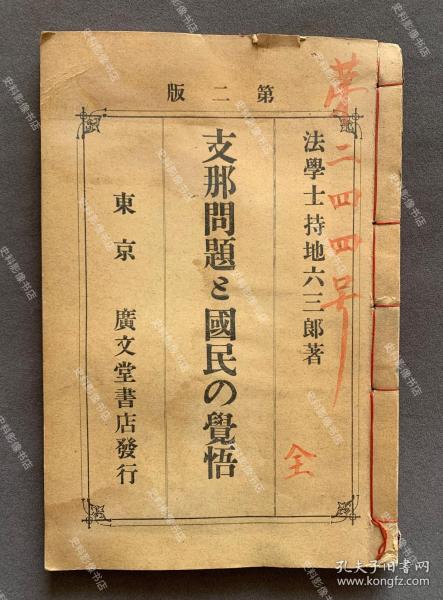 第二版
第二四四号
法學士持地六三郎著
全
支那問題と國民の覺悟
東京 廣文堂書店發行
史料影像书店
孔夫子旧书网
www.kongfz.com